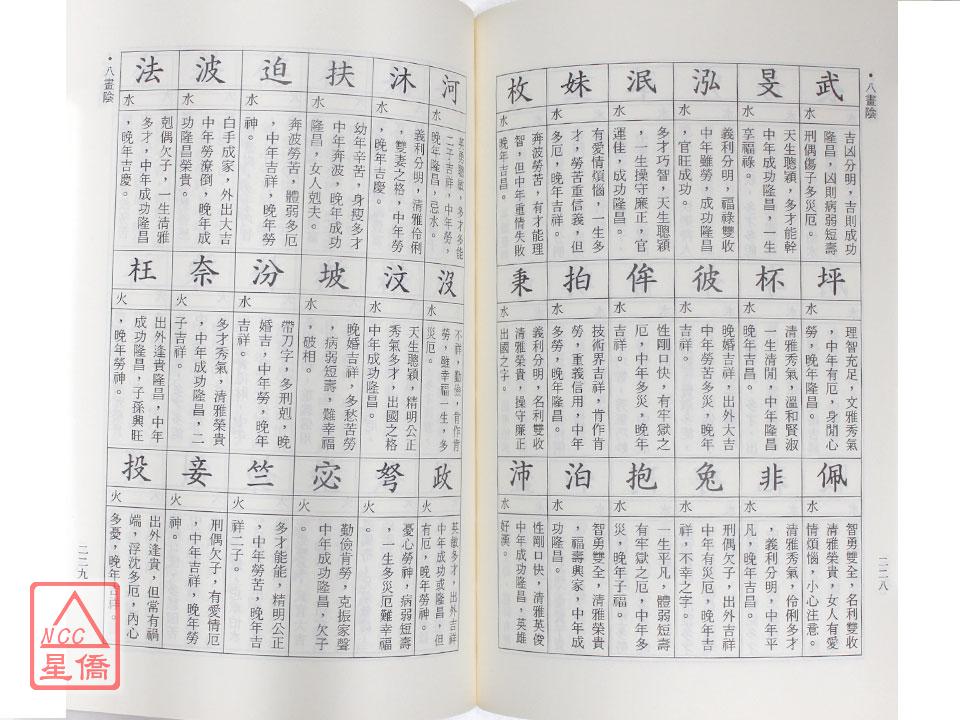 •八畫陰
武
水
吉凶分明，吉則成功
隆昌，凶則病弱短壽
刑偶傷子多災厄。
旻
水
天生聰穎，多才能幹
中年成功隆昌，一生
享福祿。
泓
水
義利分明，福祿雙收
中年雖勞，成功隆昌
，官旺成功。
泯
水
多才巧智，天生聰穎
，一生操守廉正，官
運佳，成功隆昌。
妹
水
有愛情煩惱，一生多
才，勞苦重信義，但
多厄，晚年吉祥。
枚
水
奔波勞苦，有才能理
智，但中年重情失敗
晚年吉昌。
坪
水
理智充足，文雅秀氣
，中年有厄，身閒心
勞，晚年隆昌。
杯
水
清雅秀氣，溫和賢淑
一生清閒，中年隆昌
晚年吉昌。
彼
水
晚婚吉祥，出外大吉
中年勞苦多災，晚年
吉祥。
侔
水
性剛口快，有牢獄之
厄，中年多災，晚年
吉祥。
拍
水
技術界吉祥，肯作肯
勞，重義信用，中年
多勞，晚年隆昌。
秉
水
義利分明，名利雙收
清雅榮貴，操守廉正
出國之字。
佩
水
智勇雙全，名利雙收
清雅榮貴，女人有愛
情煩惱，小心注意。
非
水
清雅秀氣，伶俐多才
，義利分明，中年平
凡，晚年吉昌。
兔
水
刑偶欠子，出外吉祥
中年有災厄，晚年吉
祥，不幸之字。
抱
水
一生平凡，體弱多災
有牢獄之厄，中年多
災，晚年子福。
泊
水
智勇雙全，清雅榮貴
，福壽興家，中年成
功隆昌。
沛
水
性剛口快，清雅英俊
中年成功隆昌，英雄
好漢。
二二八
河
水
二子吉祥，中年勞，
晚年隆昌，忌水。
沐
水
義利分明，清雅伶俐
，雙妻之格，中年勞
，晚年吉慶。
扶
水
幼年辛苦，身瘦多才
中年奔波，晚年成功
隆昌，女人剋夫。
迫
水
奔波勞苦，體弱多厄
，中年吉祥，晚年勞
神。
波
水
白手成家，外出大吉
中年勞潦倒，晚年成
功隆昌榮貴。
法
水
剋偶欠子，一生清雅
多才，中年成功隆昌
，晚年吉慶。
•八畫陰
沒
水
不祥，勤儉，肯作肯
勞，雖幸福一生，多
災厄。
汶
水
天生聰穎，精明公正
秀氣多才，出國之格
中年成功隆昌。
坡
水
晚婚吉祥，多愁苦勞
，病弱短壽，難幸福
，破相。
汾
水
帶刀字，多刑剋，晚
婚吉，中年勞，晚年
吉祥。
奈
火
多才秀氣，清雅榮貴
，中年成功隆昌，二
子吉祥。
枉
火
出外逢貴隆昌，中年
成功隆昌，子孫興旺
，晚年勞神。
政
火
英敏多才，出外吉祥
中年成功或隆昌，但
有厄，晚年勞神。
弩
火
憂心勞神，病弱短壽
，一生多災厄難幸福
。
宓
火
勤儉肯勞，克振家聲
中年成功隆昌，欠子
。
竺
火
多才能能，精明公正
，中年勞苦，晚年吉
祥二子。
妾
火
刑偶欠子，有愛情厄
，中年吉祥，晚年勞
神。
投
火
出外逢貴，但常有禍
端，浮沈多厄，內心
多憂，晚年吉祥。
二二九
NCC
星僑